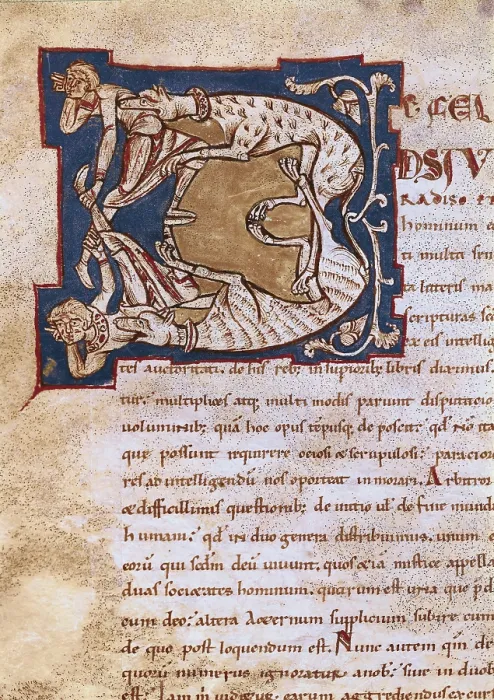 E FEL
DSI V
RADISO ET
hominum
ti multi sen
ta lateris ma
scripturas
ex eis intellig
tel auctoritati. de his rebꝫ insupiorib; libris diximus.
tur. multiplices atq; multi modis pariunt disputatio
voluminib; quā hoc opus tēpusq; de poscat. qđ no ita
que possunt requirere ociosi & scrupulosi. paratior
res ad intelligendū nos oporteat inmorari. Arbitror
& difficillimis questionib; de initio ul de fine mundi
humani. qđ in duo genera distribuimus. unum
eorū qui scdm deū uiuunt. quos & iā mistice appella
duas societates hominum. quarum est una que p̄d
cum deo. altera Aeternum supplicium subire cum
de quo post loquendum est. Nunc autem qm de
quorū numerus ignoratur anob. siue in duob
est. Iam m uidetur earum aggrediendus excur